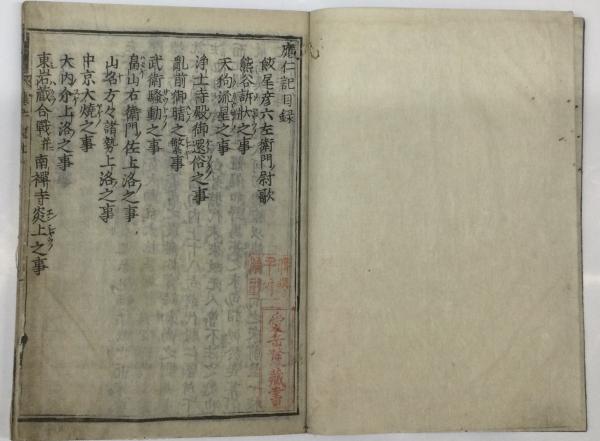 應仁記目録
飯尾彦六左衛門尉歌
熊谷訴状之事
天狗流星之事
浄土寺殿御還俗之事
乱前御晴之繁事
武衛騒動之事
畠山右衛門佐上洛之事
山名方々諸勢上洛之事
中京大焼之事
大内介上洛之事
東岩蔵合戦并南禅寺炎上之事